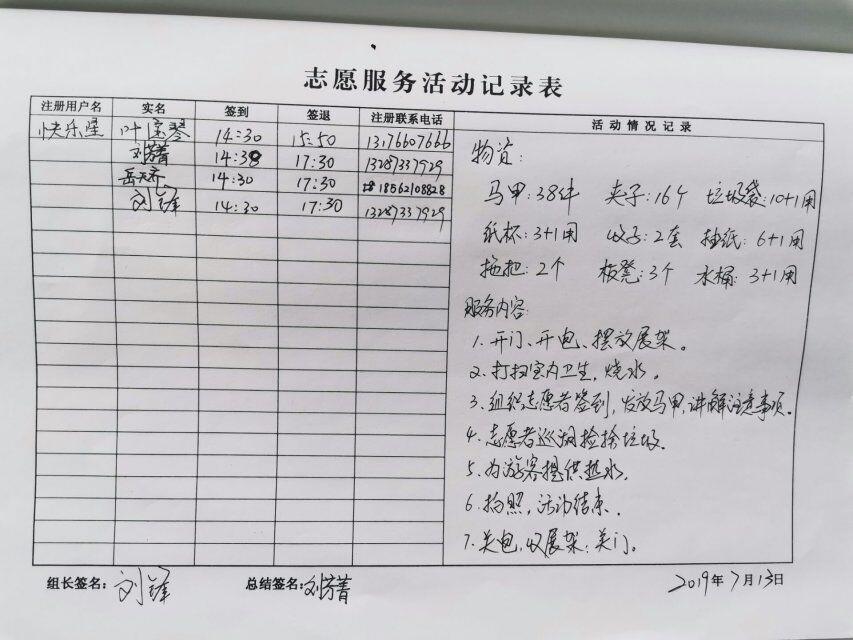 志愿服务活动记录表
注册用户名 实名 签到 签退 注册联系电话 活动情况记录
快乐星 叶宝琴 14:30 15:50 13176607666
刘芳菁 14:38 17:30 13287337929
岳天乔 14:30 17:30 18562108828
刘 14:30 17:30 13287337929
物资:
马甲:38件 夹子:16个 垃圾袋:10+1用
纸杯:3+1用 :2套 抽纸:6+1用
拖把:2个 板凳:3个 水桶:3+1用
服务内容:
1、开门、开包、摆放展架。
2、打扫室内卫生,烧水。
3、组织志愿者签到,发放马甲,讲解注意事项。
4、志愿者巡湖捡拾垃圾。
5、为游客提供热水。
6、拍照,活动结束。
7、关包,收展架;关门。
组长签名:刘 总结签名:刘芳菁 2019年7月13日